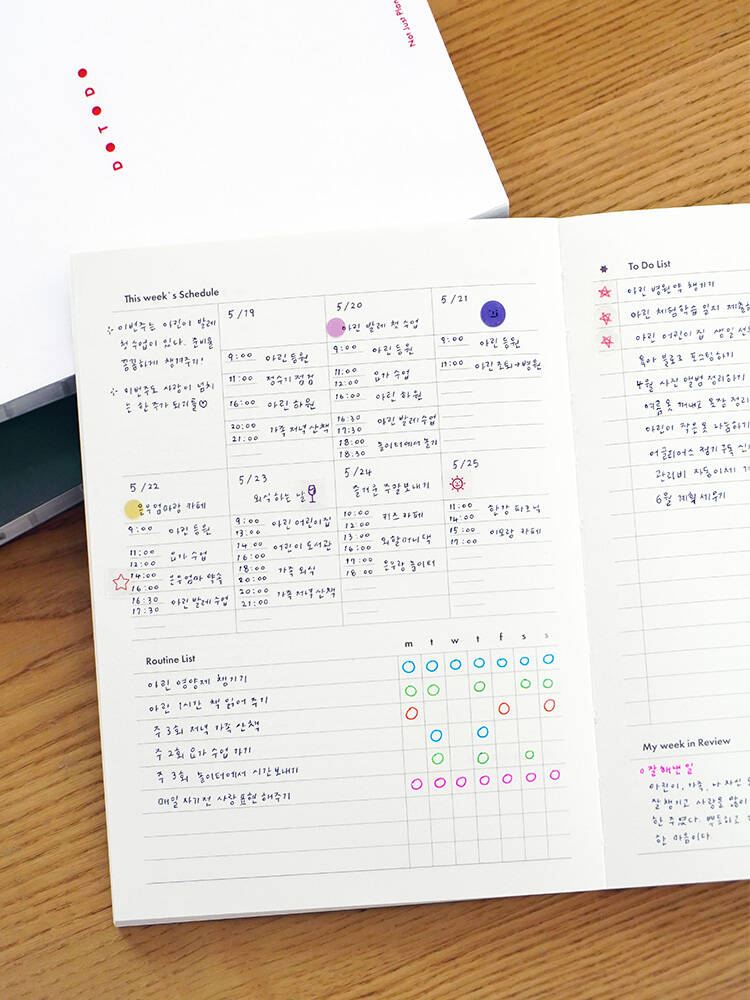 Not Just Plan
DOTODO
This week's Schedule
이번주는 아린이 발레
첫 수업이 있다. 준비물
꼼꼼하게 챙겨주기!
이번주도 사랑이 넘치
는 한 주가 되기를♡
5/19
9:00 아린 등원
11:00 정수기 점검
16:00 아린 하원
20:00
21:00 가족 저녁 산책
5/20
아린 발레 첫 수업
9:00 아린 등원
11:00
12:00 요가 수업
16:00 아린 하원
16:30
17:30 아린 발레 수업
18:00
18:30 놀이터에서 놀기
5/21
9:00 아린 등원
15:00 아린 조퇴→병원
5/22
은우엄마랑 카페
9:00 아린 등원
11:00
12:00 요가 수업
14:00
16:00 은우엄마 약속
16:30
17:30 아린 발레 수업
5/23
외식하는 날
9:00
13:00 아린 어린이집
14:00
16:00 어린이 도서관
18:00
20:00 가족 외식
20:00
21:00 가족 저녁 산책
5/24
즐거운 주말 보내기
10:00
12:00 키즈 카페
13:00
16:00 외할머니댁
17:00
18:00 은우랑 놀이터
5/25
11:00
14:00 한강 피크닉
15:00
17:00 이모랑 카페
Routine List
m t w t f s s
아린 영양제 챙기기
아린 1시간 책 읽어 주기
주 3회 저녁 가족 산책
주 2회 요가 수업 가기
주 3회 놀이터에서 시간 보내기
매일 자기전 사랑 표현 해주기
To Do List
아린 병원 약 챙기기
아린 체험학습 일지 제출하
아린 어린이집 생일 선
육아 블로그 포스팅하기
4월 사진 앨범 정리하기
여름 옷 꺼내고 옷장 정리
아린이 작은 옷 나눔하기
정기구독 신
관리비 자동이체
6월 계획 세우기
My week in Review
잘 해낸 일
아린이, 가족, 나 자신
잘 챙기고 사랑을 많이
한 주였다. 뿌듯하고
한 마음이다.